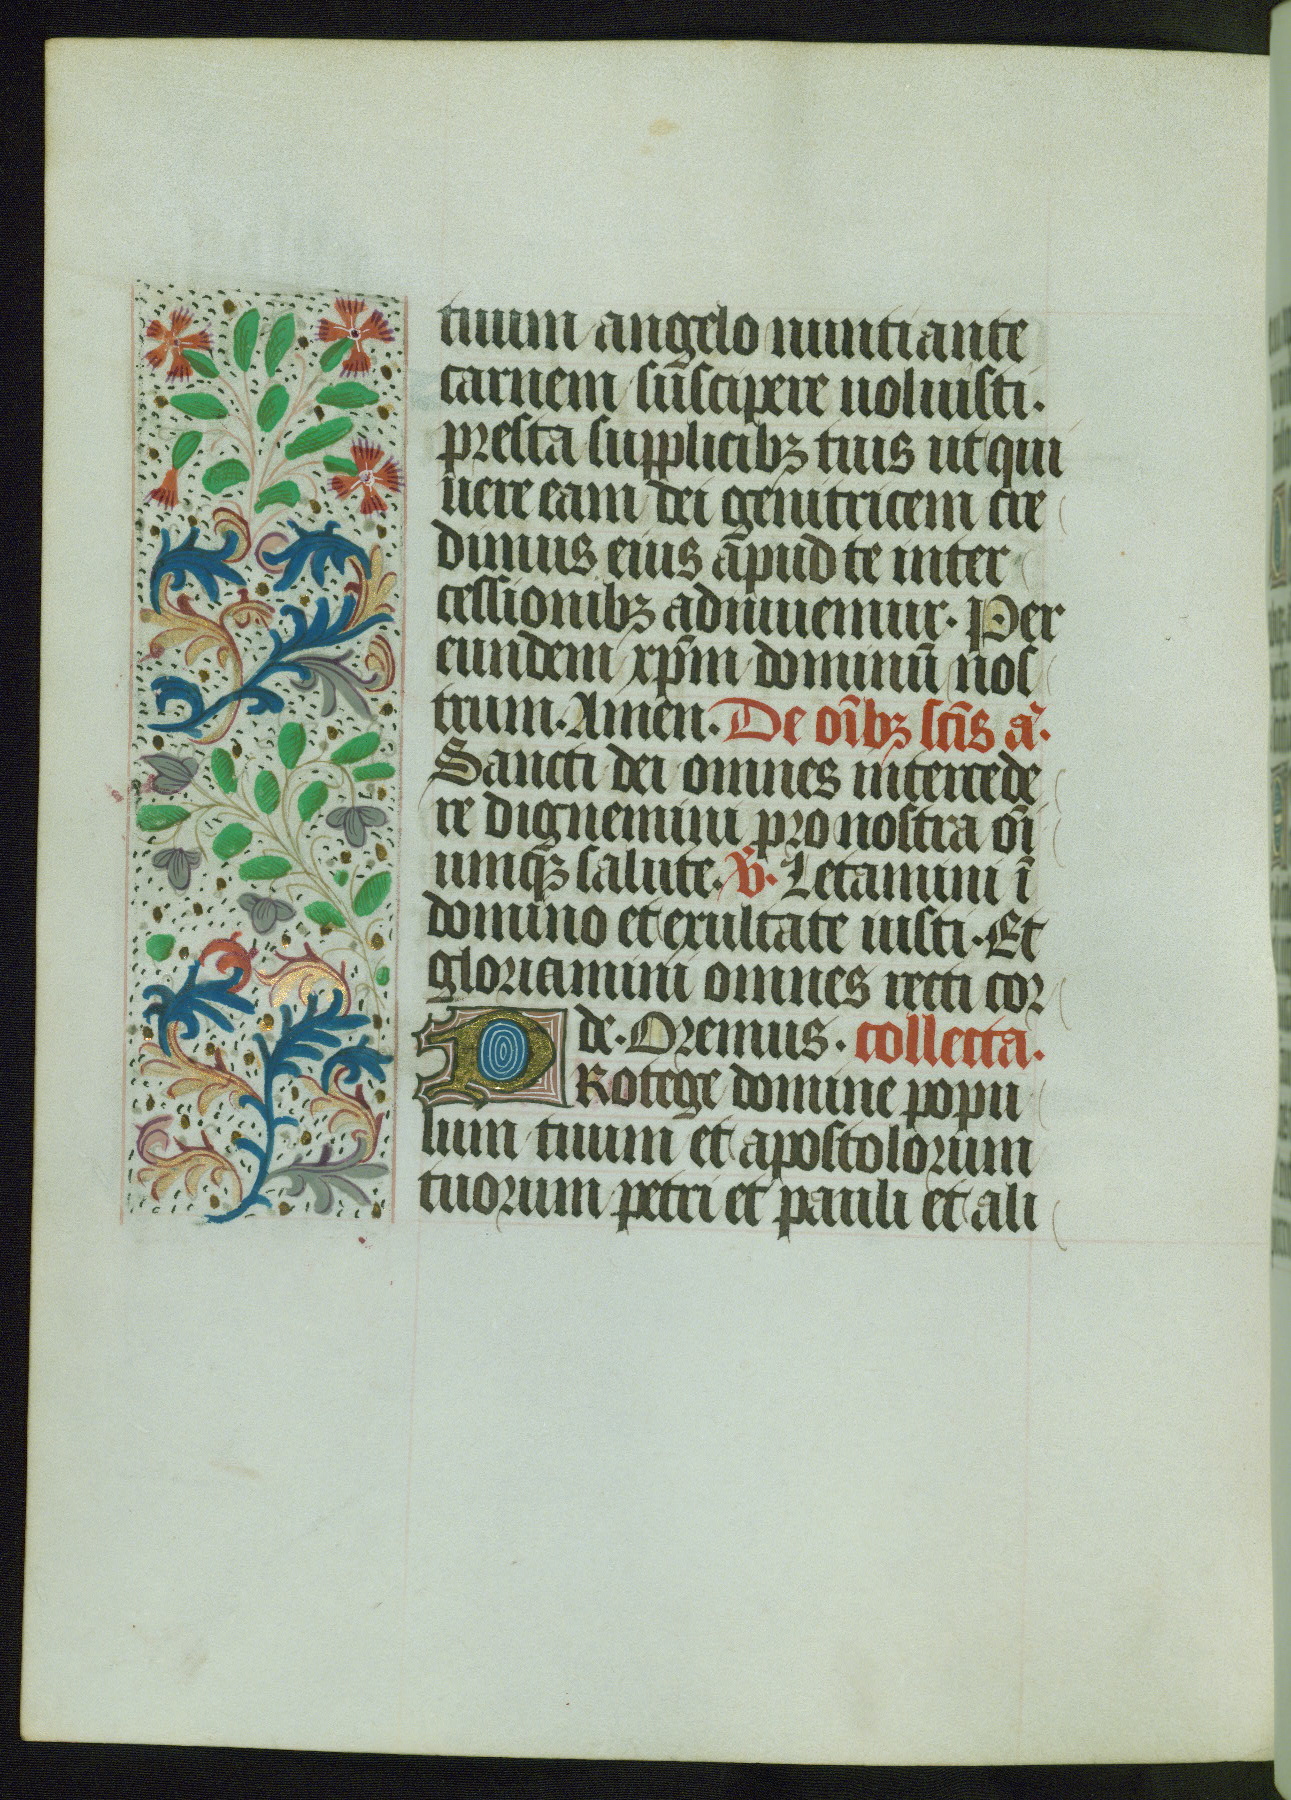 tuum angelo nuntiante
carnem sūscipere uoluisti.
presta supplicibꝫ tuis ut qui
uere eam dei genitricem cre
dimus eius āpud te inter
cessionibꝫ adiuuemur. Per
eundem xp̄m dominū nos
trum. Amen. De oībꝫ sc̄is a᷑.
Sancti dei omnes intercede
re dignemini pro nostra om̄
iumqꝫ salute. v̄. Letamini ī
domino et exultate iusti. Et
gloriamini omnes recti cor
de. Oremus. collecta.
PRotege domine popu
lum tuum et apostolorum
tuorum petri et pauli et ali